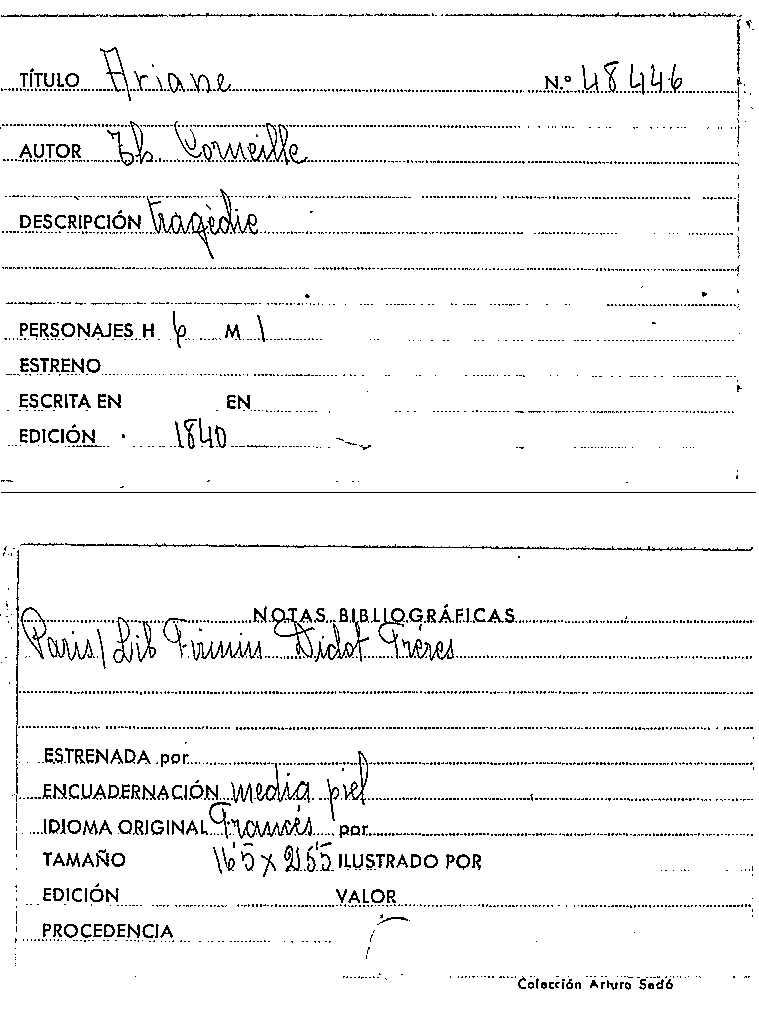 TÍTULO Ariane N.º 48446
AUTOR Th. Corneille
DESCRIPCIÓN tragédie
PERSONAJES H 6 M 1
ESTRENO
ESCRITA EN EN
EDICIÓN 1840
NOTAS BIBLIOGRÁFICAS
Paris/ Lib Firmin Didot Fréres
ESTRENADA por
ENCUADERNACIÓN media piel
IDIOMA ORIGINAL Francés por
TAMAÑO 16'5 x 25'5 ILUSTRADO POR
EDICIÓN VALOR
PROCEDENCIA
Colección Arturo Sedó